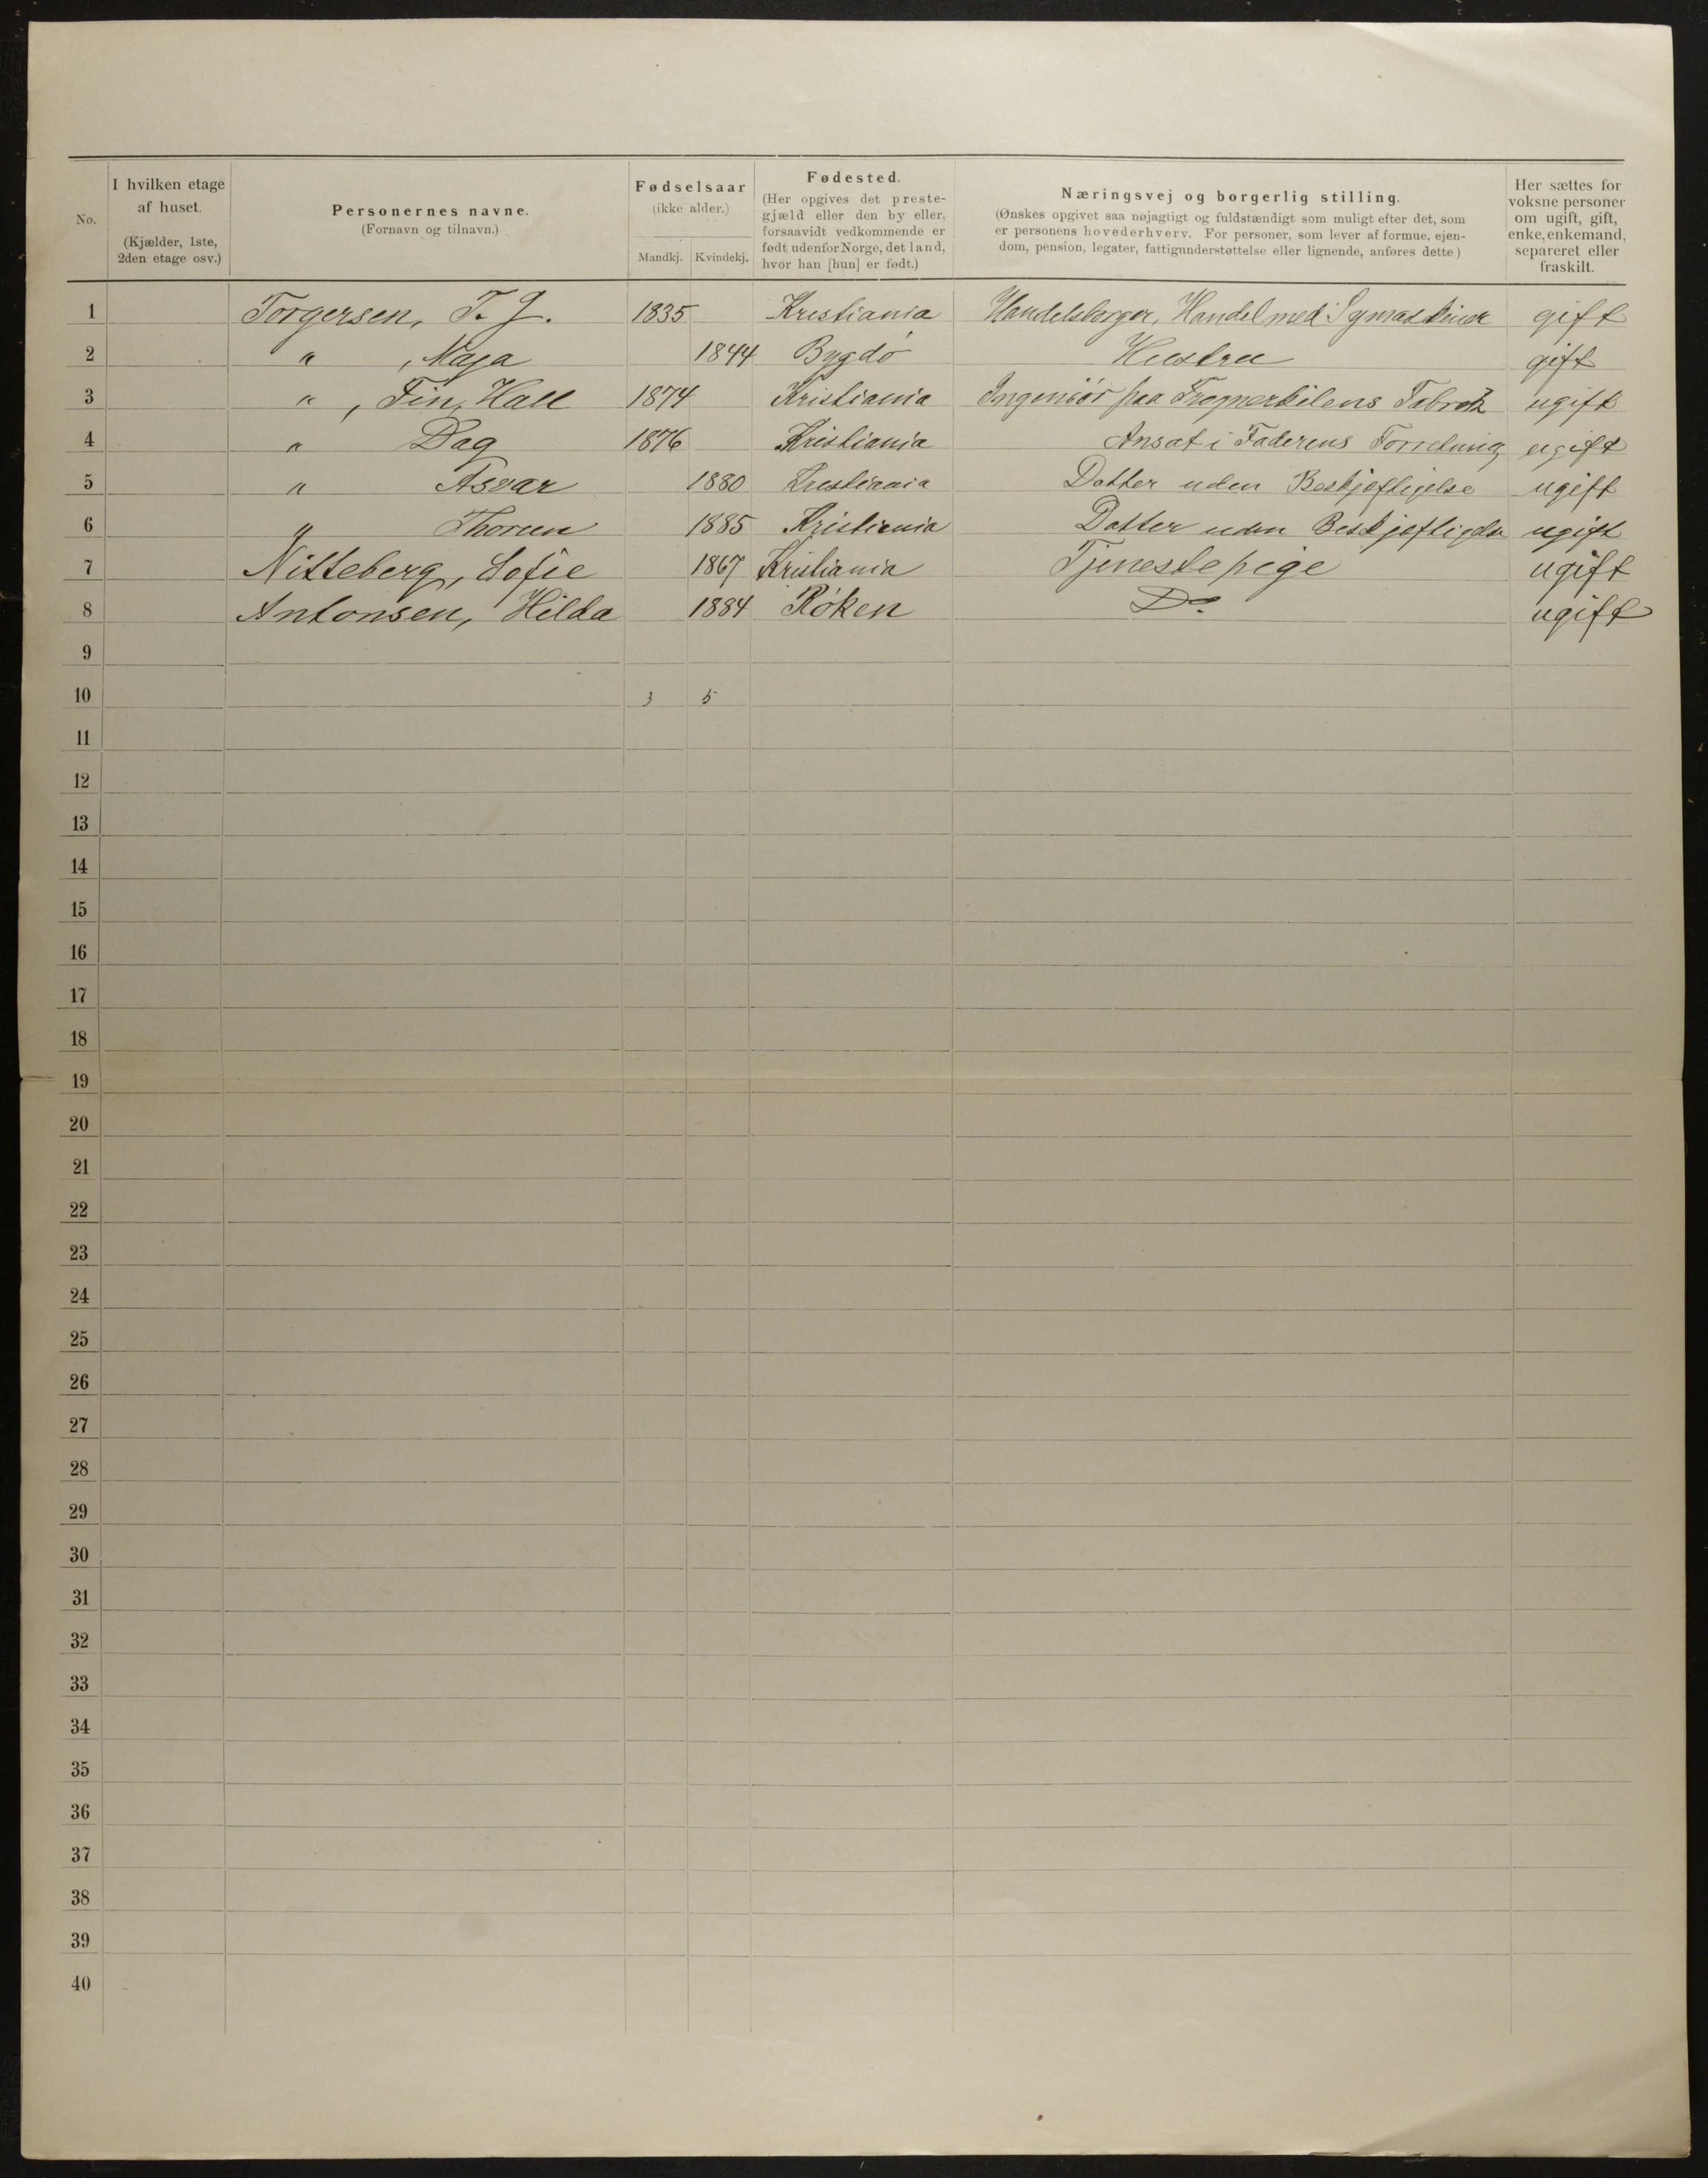 No.
I hvilken etage af huset. (Kjælder, 1ste, 2den etage osv.)
Personernes navne. (Fornavn og tilnavn.)
Fødselsaar (ikke alder.)
Mandkj. Kvindekj.
Fødested. (Her opgives det prestegjæld eller den by eller, forsaavidt vedkommende er født udenfor Norge, det land, hvor han [hun] er født.)
Næringsvej og borgerlig stilling. (Ønskes opgivet saa nøjagtigt og fuldstændigt som muligt efter det, som er personens hovederhverv. For personer, som lever af formue, ejendom, pension, legater, fattigunderstøttelse eller lignende, anføres dette)
Her sættes for voksne personer om ugift, gift, enke, enkemand, separeret eller fraskilt.
1 Torgersen, T. J. 1835 Kristiania Handelsborger, Handel med Symaskiner gift
2 " , Maja 1844 Bygdø Hustru gift
3 " , Fin Hall 1874 Kristiania Ingeniör paa Frognerkilens Fabrik ugift
4 " Dag 1876 Kristiania Ansat i Faderens Forretning ugift
5 " Asvar 1880 Kristiania Datter uden Beskjæftigelse ugift
6 " Thorun 1885 Kristiania Datter uden Beskjæftigelse ugift
7 Nitteberg, Sofie 1867 Kristiania Tjenestepige ugift
8 Antonsen, Hilda 1884 Røken Do. ugift
9
10 3 5
11
12
13
14
15
16
17
18
19
20
21
22
23
24
25
26
27
28
29
30
31
32
33
34
35
36
37
38
39
40